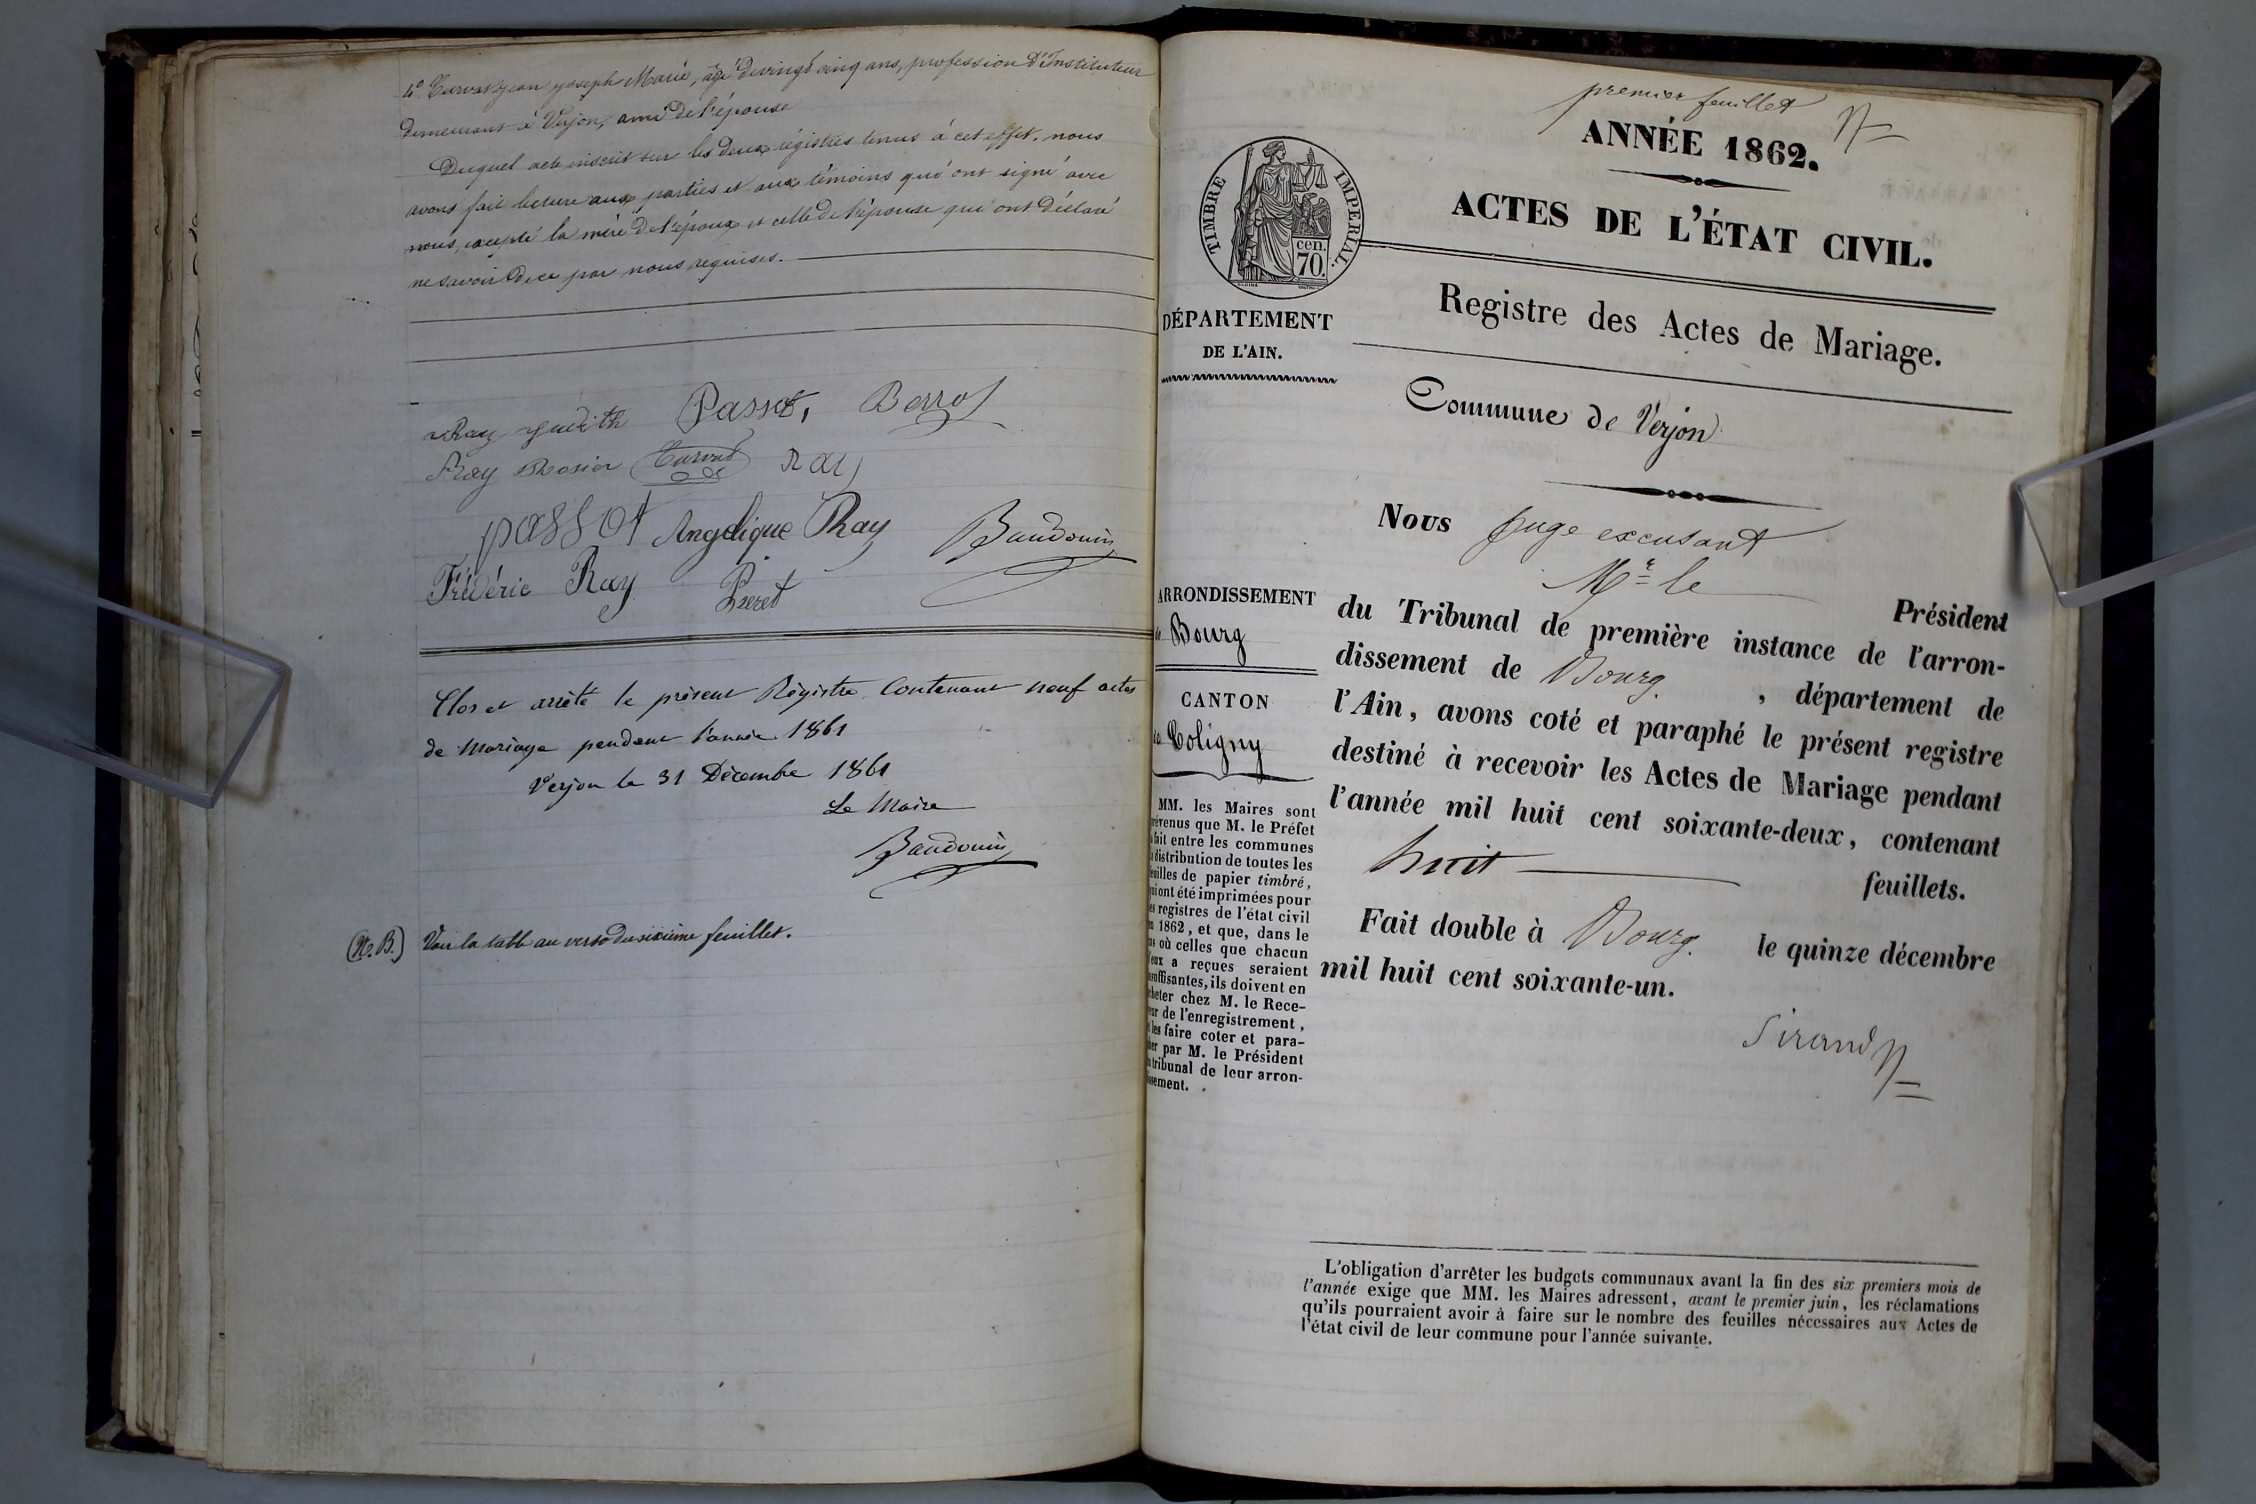 4° Curvat Jean Joseph Marie, âgé de vingt cinq ans, profession d'Instituteur
demeurant à Verjon, ami de l'épouse
Duquel acte inscrit sur les deux régistres tenus à cet effet, nous
avons fait lecture aux parties et aux témoins qui ont signé avec
nous, excepté la mère de l'époux et celle de l'épouse qui ont déclaré
ne savoir de ce par nous requises.
Ray Judith Passot, Berrod
Ray Rosier Curvat Ray
passot Angelique Ray Baudouin
Fréderic Ray Péret
Clos et arrêté le présent Régistre Contenant neuf actes
de Mariage pendant l'année 1861
Verjon le 31 Décembre 1861
Le Maire
Baudouin
(N. B.) Voir la table au verso du sixième feuillet.
premier feuillet
ANNÉE 1862.
ACTES DE L'ÉTAT CIVIL.
TIMBRE IMPERIAL.
cen.
70.
Registre des Actes de Mariage.
DÉPARTEMENT
DE L'AIN.
Commune de Verjon
Nous juge excusant
Mr le
Président
du Tribunal de première instance de l'arron-
dissement de Bourg, département de
l'Ain, avons coté et paraphé le présent registre
destiné à recevoir les Actes de Mariage pendant
l'année mil huit cent soixante-deux, contenant
huit feuillets.
Fait double à Bourg. le quinze décembre
mil huit cent soixante-un.
Sirand
ARRONDISSEMENT
de Bourg
CANTON
de Coligny
MM. les Maires sont
prévenus que M. le Préfet
a fait entre les communes
la distribution de toutes les
feuilles de papier timbré,
qui ont été imprimées pour
les registres de l'état civil
en 1862, et que, dans le
cas où celles que chacun
d'eux a reçues seraient
insuffisantes, ils doivent en
acheter chez M. le Rece-
veur de l'enregistrement,
et les faire coter et para-
pher par M. le Président
du tribunal de leur arron-
dissement.
L'obligation d'arrêter les budgets communaux avant la fin des six premiers mois de
l'année exige que MM. les Maires adressent, avant le premier juin, les réclamations
qu'ils pourraient avoir à faire sur le nombre des feuilles nécessaires aux Actes de
l'état civil de leur commune pour l'année suivante.